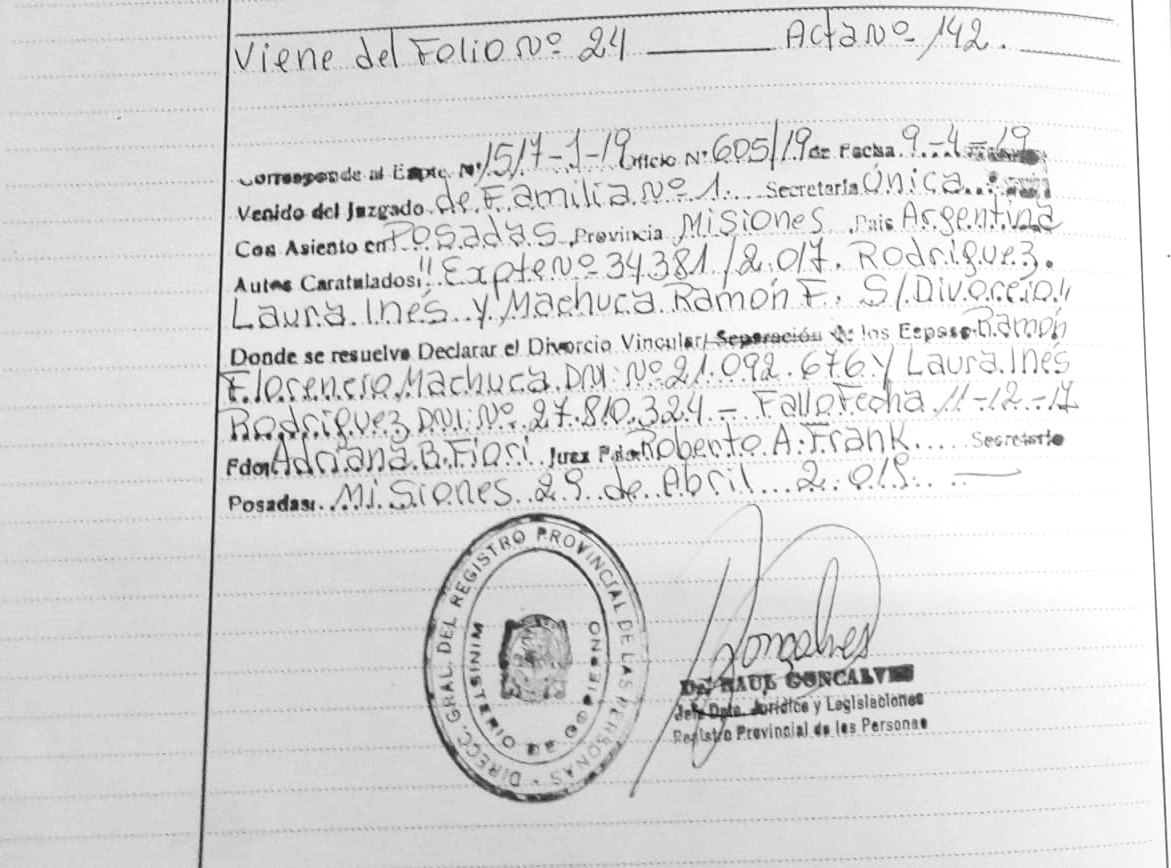 Viene del Folio Nº 24 Acta Nº 142.
Corresponde al Expte. Nº 1517-1-19 Oficio Nº 605/19 de Fecha 9-4-19
Venido del Juzgado de Familia Nº 1. Secretaria Única
Con Asiento en Posadas Provincia Misiones Pais Argentina
Autos Caratulados: "Expte Nº 34381/2.017. Rodríguez
Laura Inés y Machuca Ramón F. S/Divorcio"
Donde se resuelve Declarar el Divorcio Vincular/Separación de los Esposos Ramón
Florencio Machuca DNI: Nº 21.092.676 y Laura Inés
Rodríguez DNI: Nº 27.810.324 - Fallo Fecha 11-12-17
Fdo: Adriana B. Fiori Juez Fdo: Roberto A. Frank Secretario
Posadas: Misiones 29 de Abril
DIRECC. GRAL. DEL REGISTRO PROVINCIAL DE LAS PERSONAS
MINISTERIO DE GOBIERNO
Gonçalves
Dr. RAUL GONCALVES
Jefe Dpto. Jurídico y Legislaciones
Registro Provincial de las Personas